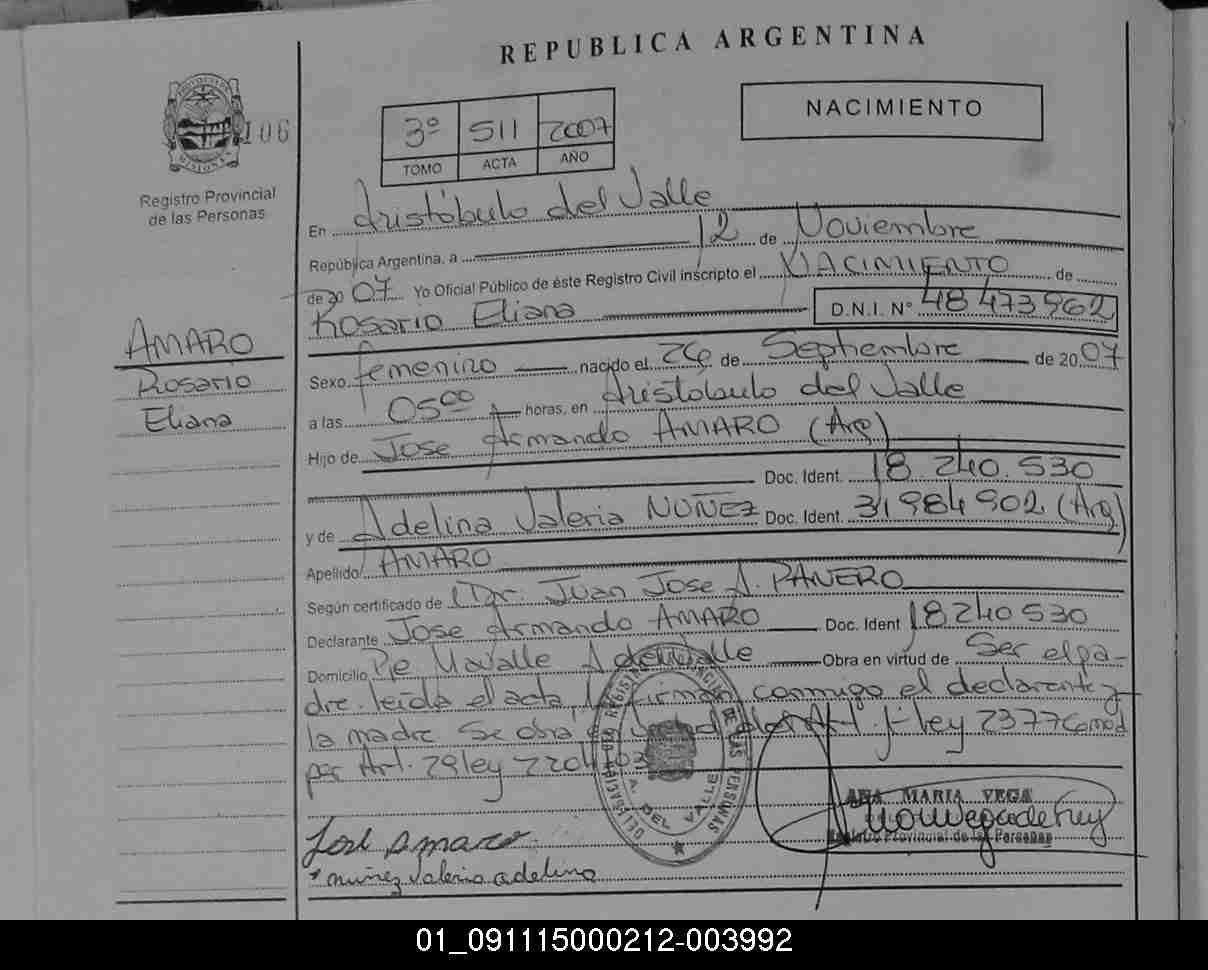 REPUBLICA ARGENTINA
NACIMIENTO
PROVINCIA
MISIONES
106
Registro Provincial
de las Personas
3º 511 2007
TOMO ACTA AÑO
En Aristóbulo del Valle
República Argentina, a 12 de Noviembre
de 2007 Yo Oficial Público de éste Registro Civil inscripto el NACIMIENTO de
Rosario Eliana D.N.I. Nº 48473962
AMARO
Rosario
Eliana
Sexo femenino nacido el 26 de Septiembre de 2007
a las 05⁰⁰ horas, en Aristobulo del Valle
Hijo de Jose Armando AMARO (Arg)
Doc. Ident. 18.240.530
y de Adelina Valeria NUÑEZ Doc. Ident. 31984902 (Arg)
Apellido AMARO
Según certificado de Dr. Juan Jose A. PANERO
Declarante Jose Armando AMARO Doc. Ident 18240530
Domicilio A del Valle Obra en virtud de Ser el pa-
dre. leida el acta, la firman conmigo el declarente y
la madre Se obra en del Art. 1º ley 23776 mod
por Art. 29 ley
DELEGACION DE REGISTRO PROVINCIAL DE LAS PERSONAS
A. DEL VALLE
ANA MARIA VEGA
Registro Provincial de las Personas
José Amaro
nuñez valeria adelina
01_091115000212-003992